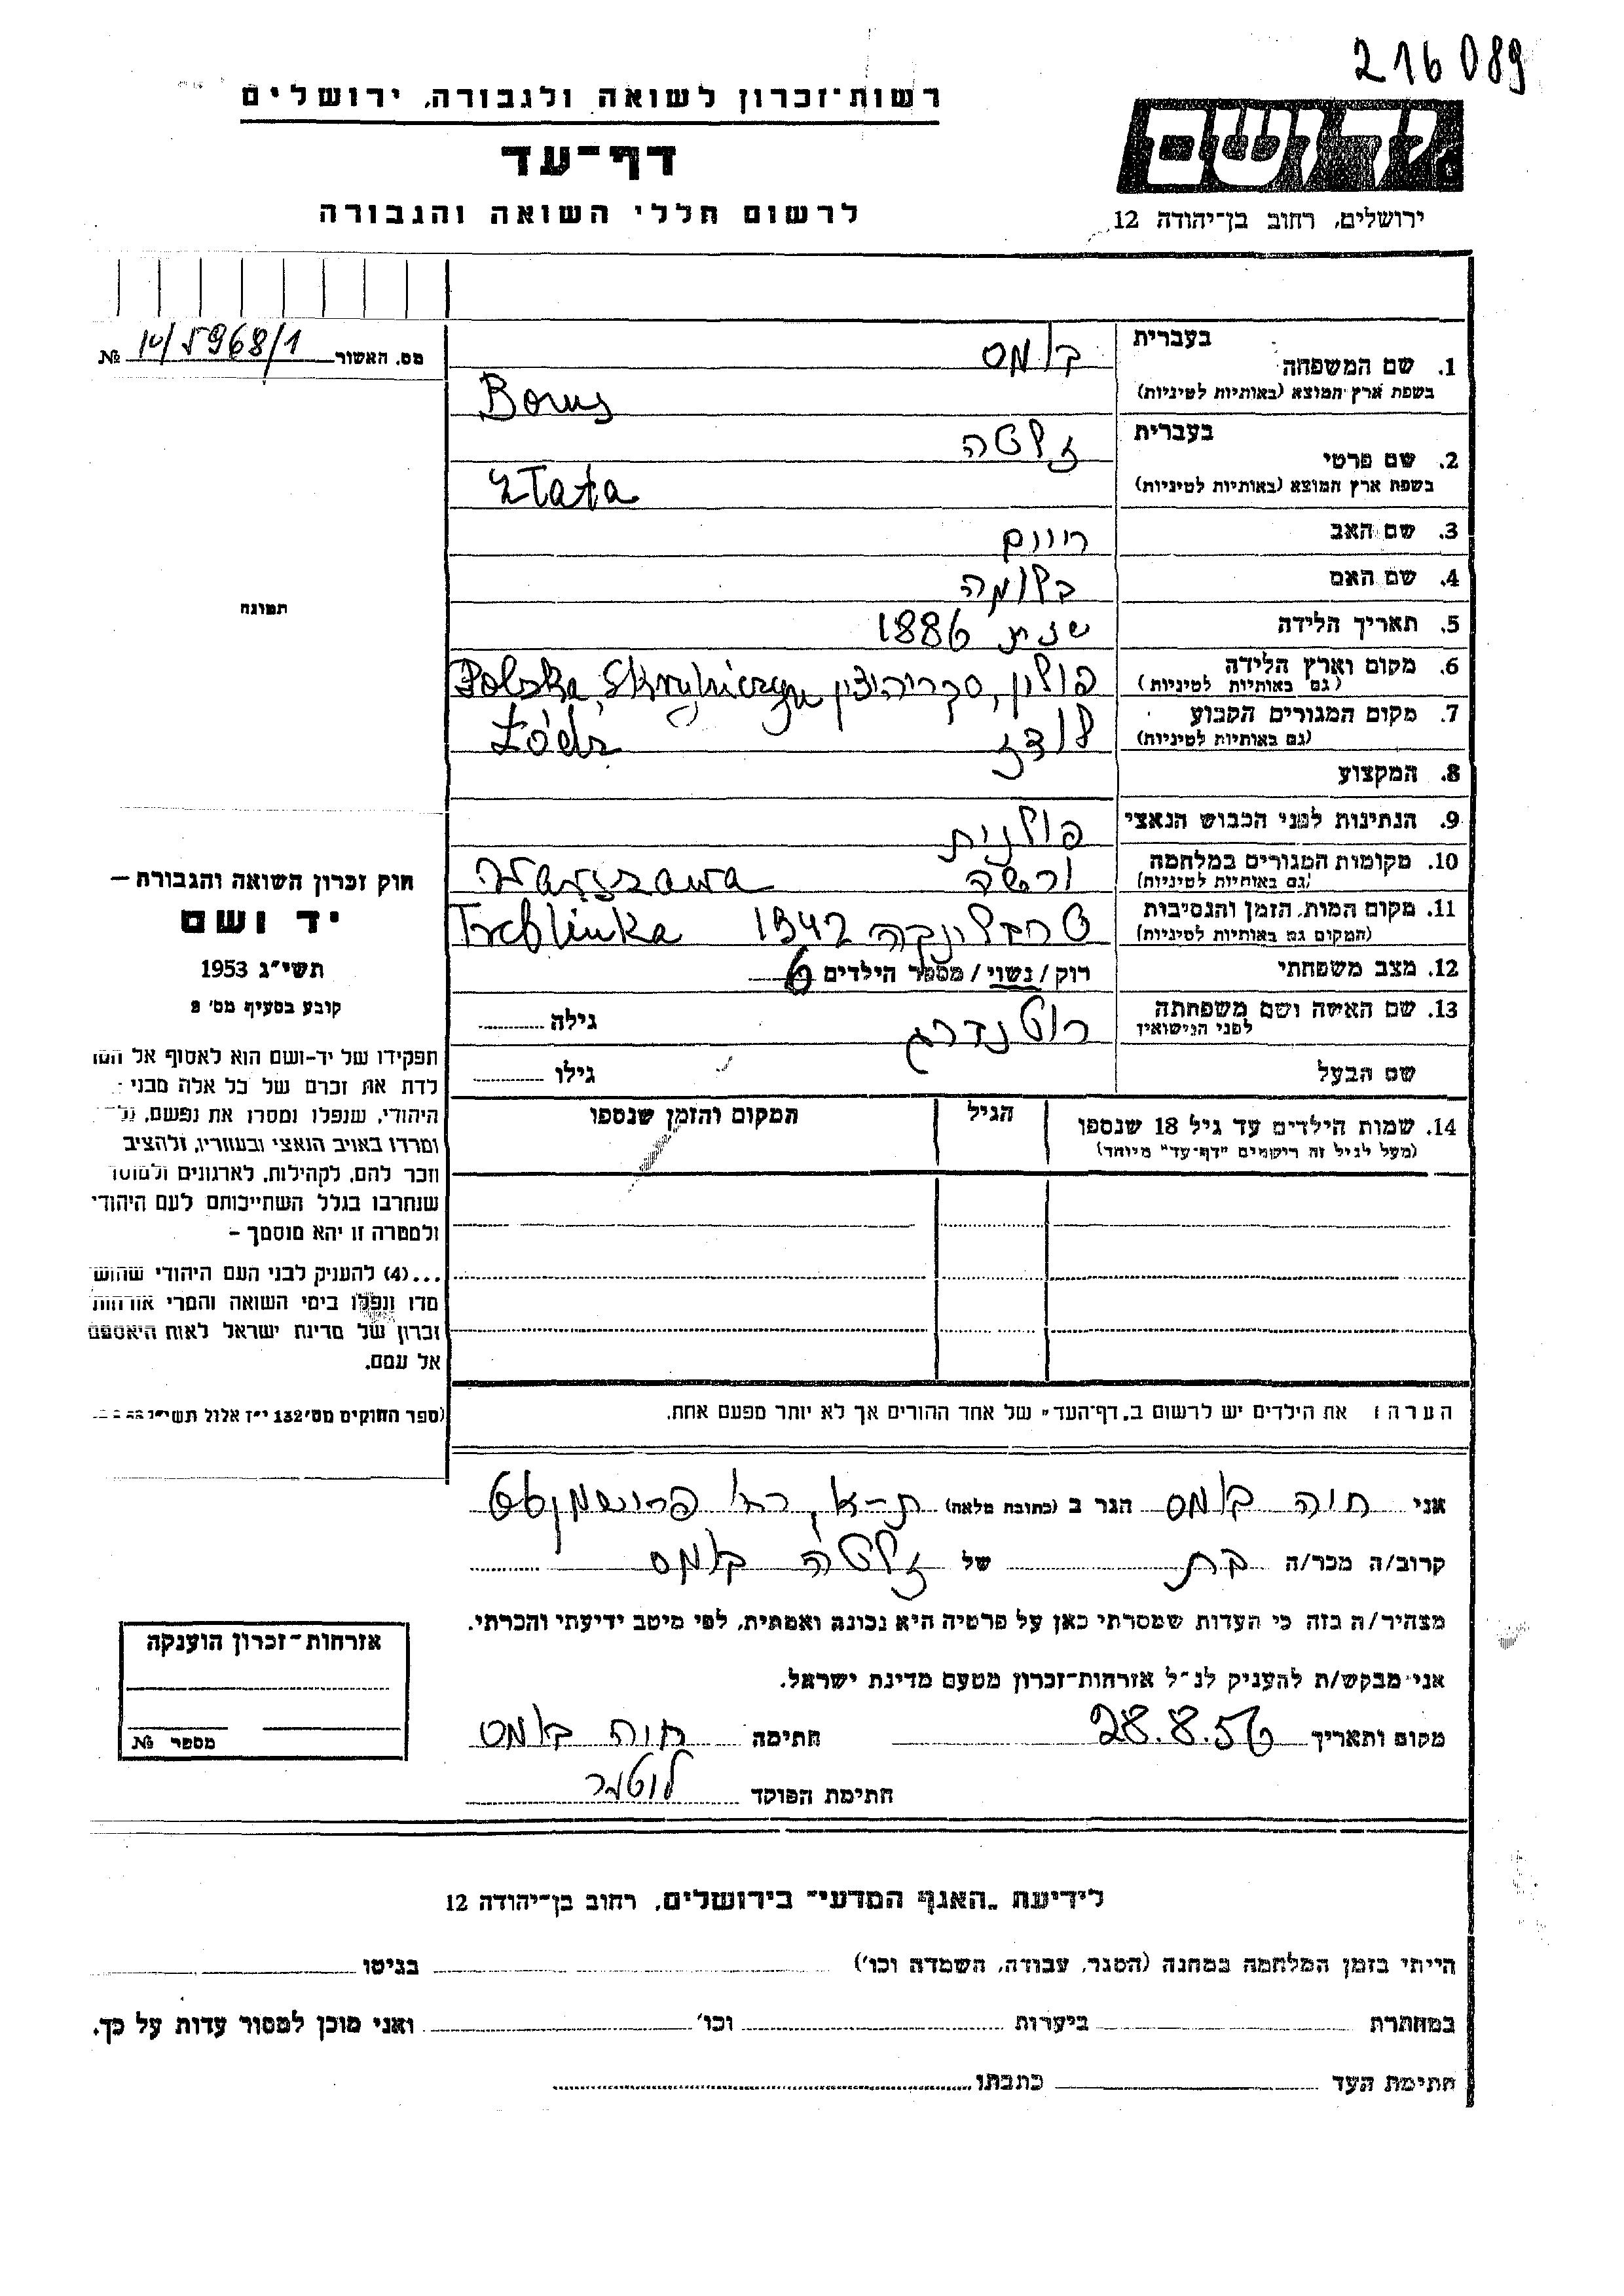 216089
רשות־זכרון לשואה ולגבורה, ירושלים
דף־עד
לרשום חללי השואה והגבורה
יד ושם
ירושלים, רחוב בן־יהודה 12
מס. האשור 5968/1 №
1. שם המשפחה בעברית
בשפת ארץ המוצא (באותיות לטיניות)
2. שם פרטי בעברית זלטה
בשפת ארץ המוצא (באותיות לטיניות) Złata
3. שם האב
4. שם האם
5. תאריך הלידה שנת 1886
6. מקום וארץ הלידה פולין, Polska,
(גם באותיות לטיניות)
7. מקום המגורים הקבוע לודז Łódź
(גם באותיות לטיניות)
8. המקצוע
9. הנתינות לפני הכבוש הנאצי פולנית
10. מקומות המגורים במלחמה ורשה Warszawa
(גם באותיות לטיניות)
11. מקום המות, הזמן והנסיבות טרבלינקה 1942 Treblinka
(המקום גם באותיות לטיניות)
12. מצב משפחתי רוק / נשוי / מספר הילדים 6
13. שם האשה ושם משפחתה
לפני הנישואין
גילה
שם הבעל גילו
14. שמות הילדים עד גיל 18 שנספו הגיל המקום והזמן שנספו
(מעל לגיל זה רישמים "דף־עד" מיוחד)
תמונה
חוק זכרון השואה והגבורה —
יד ושם
תשי״ג 1953
קובע בסעיף מס׳ 2
תפקידו של יד-ושם הוא לאסוף אל
לדת את זכרם של כל אלה מבני
היהודי, שנפלו ומסרו את נפשם,
ומרדו באויב הנאצי ובעוזריו, ולהציב
וזכר להם, לקהילות, לארגונים ולמוסד
שנחרבו בגלל השתייכותם לעם היהודי
ולמטרה זו יהא מוסמך –
...(4) להעניק לבני העם היהודי שהוש
מדו ונפלו בימי השואה והמרי אזרחות
זכרון של מדינת ישראל לאות היאספם
אל עמם.
(ספר החוקים מס׳ 132 י״ז אלול תשי״ג
הערה: את הילדים יש לרשום ב„דף־העד״ של אחד ההורים אך לא יותר מפעם אחת.
אני חוה הגר ב (כתובת מלאה) ת-א, רח׳
קרוב/ה מכר/ה בת של זלטה
מצהיר/ה בזה כי העדות שמסרתי כאן על פרטיה היא נכונה ואמתית, לפי מיטב ידיעתי והכרתי.
אני מבקש/ת להעניק לנ״ל אזרחות־זכרון מטעם מדינת ישראל.
מקום ותאריך 28.8.56 חתימה חוה
חתימת הפוקד
אזרחות־זכרון הוענקה
מספר №
לידיעת „האגף המדעי״ בירושלים, רחוב בן־יהודה 12
הייתי בזמן המלחמה במחנה (הסגר, עבודה, השמדה וכו׳) בגיטו
במחתרת ביערות וכו׳ ואני מוכן למסור עדות על כך.
חתימת העד כתבתו